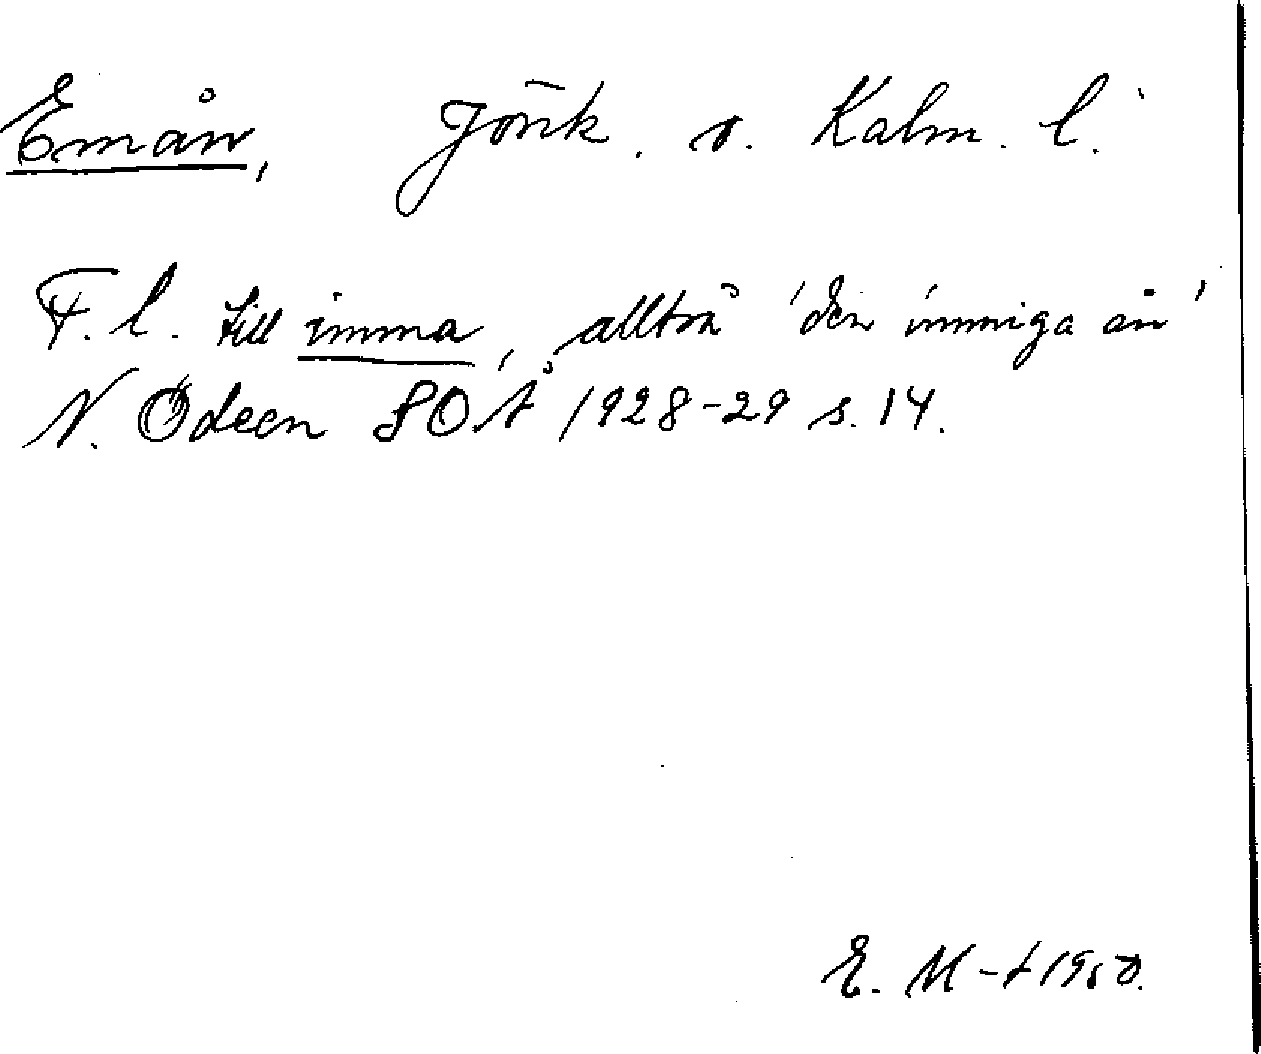 Emån, Jönk. o. Kalm. l.
F.l. till imma, alltså 'den immiga ån'
N. Ödeen SOÅ 1928-29 s. 14.
E. M-t 1950.